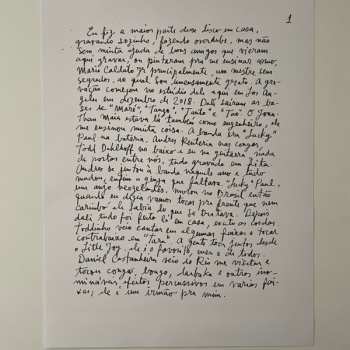 1
Eu fiz a maior parte desse disco em casa,
gravando sozinho, fazendo overdubs, mas não
sem muita ajuda de bons amigos que vieram
aqui gravar, ou pintaram pra me ensinar como
Mario Caldato Jr. principalmente, um mestre sem
segredos, ao qual sou imensamente grato. A gra-
vação começou no estúdio dele aqui em Los An-
geles em dezembro de 2018. Dali saíram as ba-
ses de "Maré", "Tango", "Tanto" e "Tao". O Jona-
than Maia estava lá também como engenheiro, ele
me ensinou muita coisa. A banda era "Lucky"
Paul na bateria, Andres Renteria nas congas,
Todd Dahlhoff no baixo e eu na guitarra, nada
de portas entre nós, tudo gravado em fita.
Andres se juntou à banda naquele ano e tudo
mudou, entrou a ginga que faltava. "Lucky" Paul,
um anjo neozelandês, morou no Brasil então
quando eu dizia vamos tocar pra frente que nem
Carimbó ele sabia do que se tratava. Depois
dali tudo foi feito lá em casa, exceto as cordas
Toddinho veio cantar em algumas faixas e tocar
contrabaixo em "Tara". A gente toca juntos desde
Little Joy, ele é o favorito, meu e de todos.
Daniel Castanheira veio do Rio me visitar e
tocou conga, bongo, darbuka e outros ino-
mináveis efeitos percussivos em várias fai-
xas, ele é um irmão pra mim.